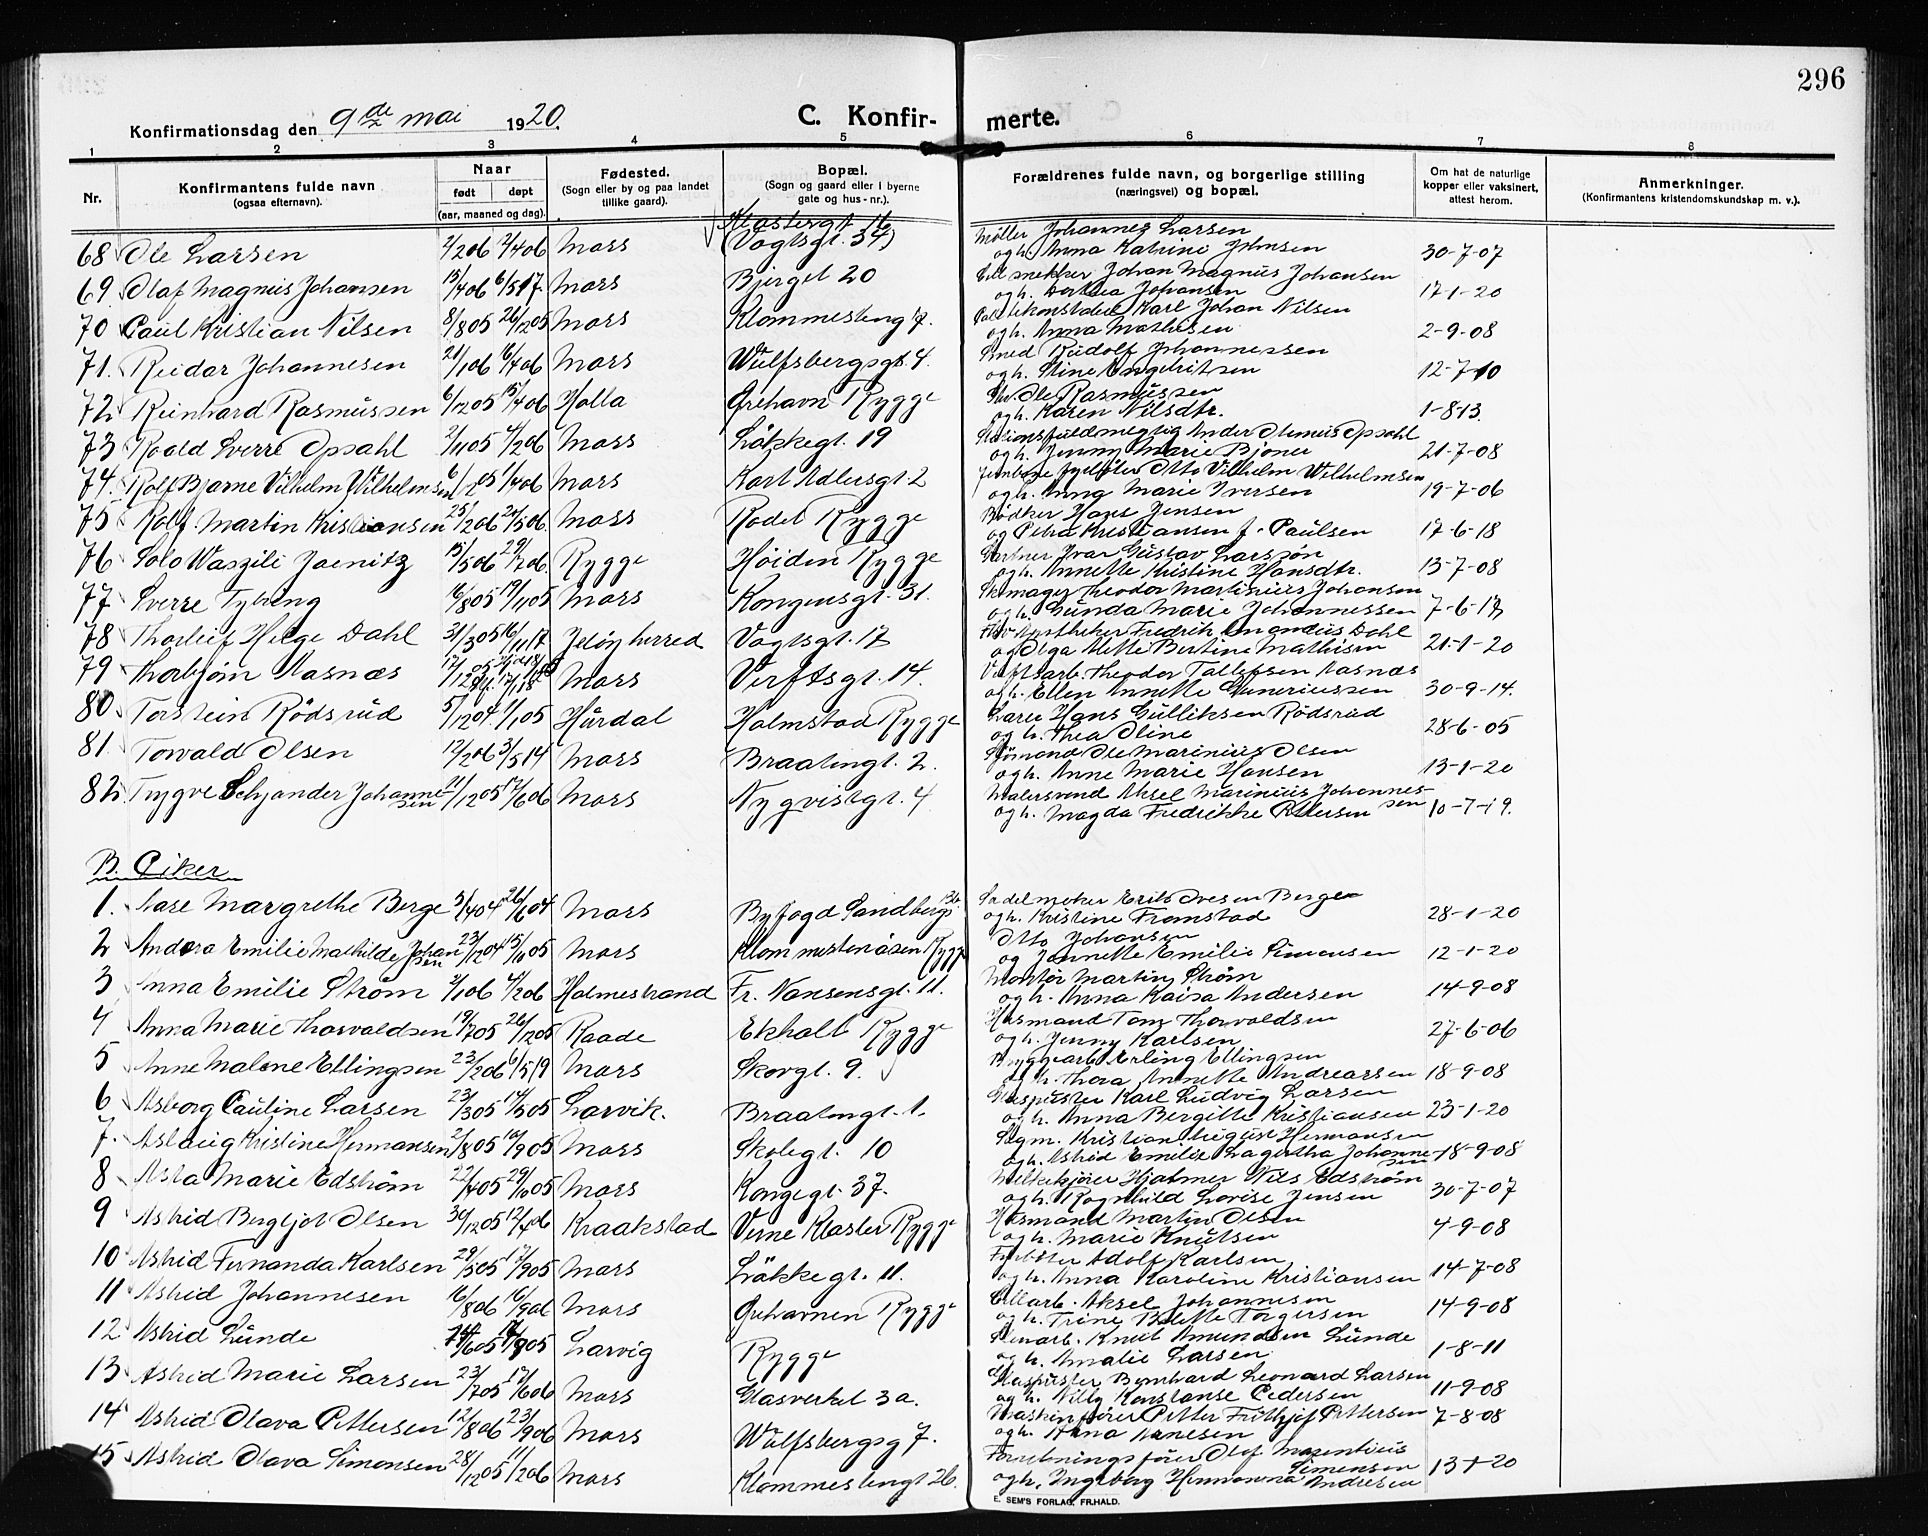 296
Konfirmationsdag den 9de mai 1920.
C. Konfir-
merte.
1 2 3 4 5 6 7 8
Nr.
Konfirmantens fulde navn
(ogsaa efternavn).
Naar
født døpt
(aar, maaned og dag).
Fødested.
(Sogn eller by og paa landet
tillike gaard).
Bopæl.
(Sogn og gaard eller i byerne
gate og hus-nr.).
Forældrenes fulde navn, og borgerlige stilling
(næringsvei) og bopæl.
Om hat de naturlige
kopper eller vaksinert,
attest herom.
Anmerkninger.
(Konfirmantens kristendomskundskap m. v.).
Klostergt. 16
68 Ole Larsen 2/2 06 2/4 06 Moss (Vogtsgt. 34) Møller Johannes Larsen
og h. Anna Katrine Johnsen 30-7-07
69 Olaf Magnus Johansen 15/4 06 6/5 17 Moss Bjerget 20 Cell snekker Johan Magnus Johansen
og h. Dorthea Johansen 17-1-20
70 Paul Kristian Nilsen 8/8 05 26/12 05 Moss Klommesteng 17. Politikonstabel Karl Johan Nilsen
og h. Anna Mathisen 2-9-08
71. Reidar Johannesen 21/1 06 16/4 06 Moss Wulfsbergsgt. 4. Smed Rudolf Johannessen
og h. Stine Engebritsen 12-7-10
72 Reinhard Rasmussen 6/12 05 15/4 06 Holla Grehavn Rygge Ole Rasmussen
og h. Karen Nilsdtr. 1-8-13.
73 Roald Sverre Opsahl 2/11 05 4/2 06 Moss Løkkegt. 19 Stationsfuldmegtig Ander Olenius Opsahl
og h. Jenny Marie Bjoner 21-7-08
74. Rolf Bjarne Vilhelm Wilhelmsen 1/4 06 Moss Kort Adlersgt 2 Jernbane fyrbøter Otto Vilhelm Wilhelmsen
og h. Anna Marie Iversen 19-7-06
75 Rolf Martin Kristiansen 25/2 06 20/5 06 Moss Rodet Rygge Bødker Hans Jensen
og Petra Kristiansen f. Paulsen 17-6-18
76 Solo Waszili Jaenitz 15/5 06 29/7 06 Rygge Høiden Rygge Gartner Ivar Gustav Larssøn
og h. Annette Kristine Hansdtr. 13-7-08
77 Sverre Tyberg 16/8 05 19/11 05 Moss Kongensgt. 31. Skomager Theodor Martinius Johansen
og h. Gunda Marie Johannessen 7-6-17
78 Thorleif Helge Dahl 31/3 05 16/11 17 Jeløy herred Vogtsgt. 17 Apotheker Fredrik Dahl
og Olga Mette Bertine Mathisen 21-1-20
79 Thorbjørn Aasnæs 17/12 05 Moss Verftsgt. 14. Verftsarb. Theodor Tallefsen Aasnæs
og h. Ellen Annette Gunerius­sen 30-9-14.
80 Torstein Rødsrud 5/12 04. 1/1 05 Hurdal Holmstad Rygge Lærer Hans Gulliksen Rødsrud
og h. Thea Oline 28-6-05
81. Torvald Olsen 12/2 06 3/5 14 Moss Braatengt. 2. Sjømand Ole Marinius Olsen
og h. Anne Marie Hansen 13-1-20
82. Trygve Schjander Johannesen 21/12 05 17/6 06 Moss Nyqvistgt. 4 Malersvend Aksel Marinius Johannessen
og h. Magda Fredrikke Pettersen 10-7-19.
B. Piker
1. Aase Margrethe Berge 3/4 04 26/6 04 Moss Byfogd Sandbergs Sadelmaker Erik Ovesen Bergen
og h. Kristine Framstad 28-1-20
2 Andora Emilie Mathilde Johansen 23/12 04 15/10 05 Moss Klommestenåsen Rygge Otto Johansen
og Jannette Emilie Simensen 12-1-20
3 Anna Emilie Strøm 3/1 06 4/2 06 Holmestrand Fr. Nansensgt. 11. Montør Martin Strøm
og h. Anna Kaisa Andersen 14-9-08
4 Anna Marie Thorvaldsen 19/7 05 26/12 05 Raade Ekholt Rygge Husmand Tom Thorvaldsen
og h. Jenny Karlsen 27-6-06
5 Anne Malene Ellingsen 23/2 06 6/5 19 Moss Skovgt. 9. Bryggearb. Erling Ellingsen
og h. Thora Annette Andreassen 18-9-08
6 Asborg Pauline Larsen 23/3 05 14/5 05 Larvik. Braatengt. 1. Glaspuster Karl Ludvig Larsen
og h. Anna Bergitte Kristiansen 23-1-20
7. Aslaug Kristine Hermansen 2/8 05 10/9 05 Moss Skolegt. 10 Sagm. Kristian August Hermansen
og h. Astrid Emilie Lagertha Johannesen 18-9-08
8 Asta Marie Edstrøm 22/4 05 29/10 05 Moss Kongegt. 37. Melkekjører Hjalmer Nils Edstrøm
og h. Ragnhild Lovise Jensen 30-7-07
9 Astrid Bergljot Olsen 30/12 05 12/4 06 Kraakstad Verne Kloster Rygge Husmand Martin Olsen
og h. Marie Knutsen 4-9-08
10 Astrid Fernanda Karlsen 29/5 05 17/9 05 Moss Løkkegt. 11. Fyrbøter Adolf Karlsen
og h. Anna Karoline Kristiansen 14-7-08
11 Astrid Johannesen 16/8 06 16/9 06 Moss Grehavnen Rygge Cellarb. Aksel Johannesen
og h. Trine Torgersen 14-9-08
12 Astrid Lunde Larvig Rygge Stenarb. Knut Amundsen Lunde
og h. Amalie Larsen. 1-8-11
13 Astrid Marie Larsen 23/7 05 17/6 06 Moss Glasverket 3a. Glaspuster Bernhard Leonard Larsen
og h. Willy Konstanse Pedersen 11-9-08
14 Astrid Olava Pettersen 12/8 06 23/9 06 Moss Wulfsbergsg 7. Maskinfører Petter Frithjof Pettersen
og h. Anna Hansen 7-8-08
15 Astrid Olava Simonsen 28/12 05 11/2 06 Moss Klommestengt 26. Forretningsfører Olaf Maxentius Simensen
og h. Ingeborg Hermanna Andresen 13-1-20
E. SEM'S FORLAG, FR.HALD.